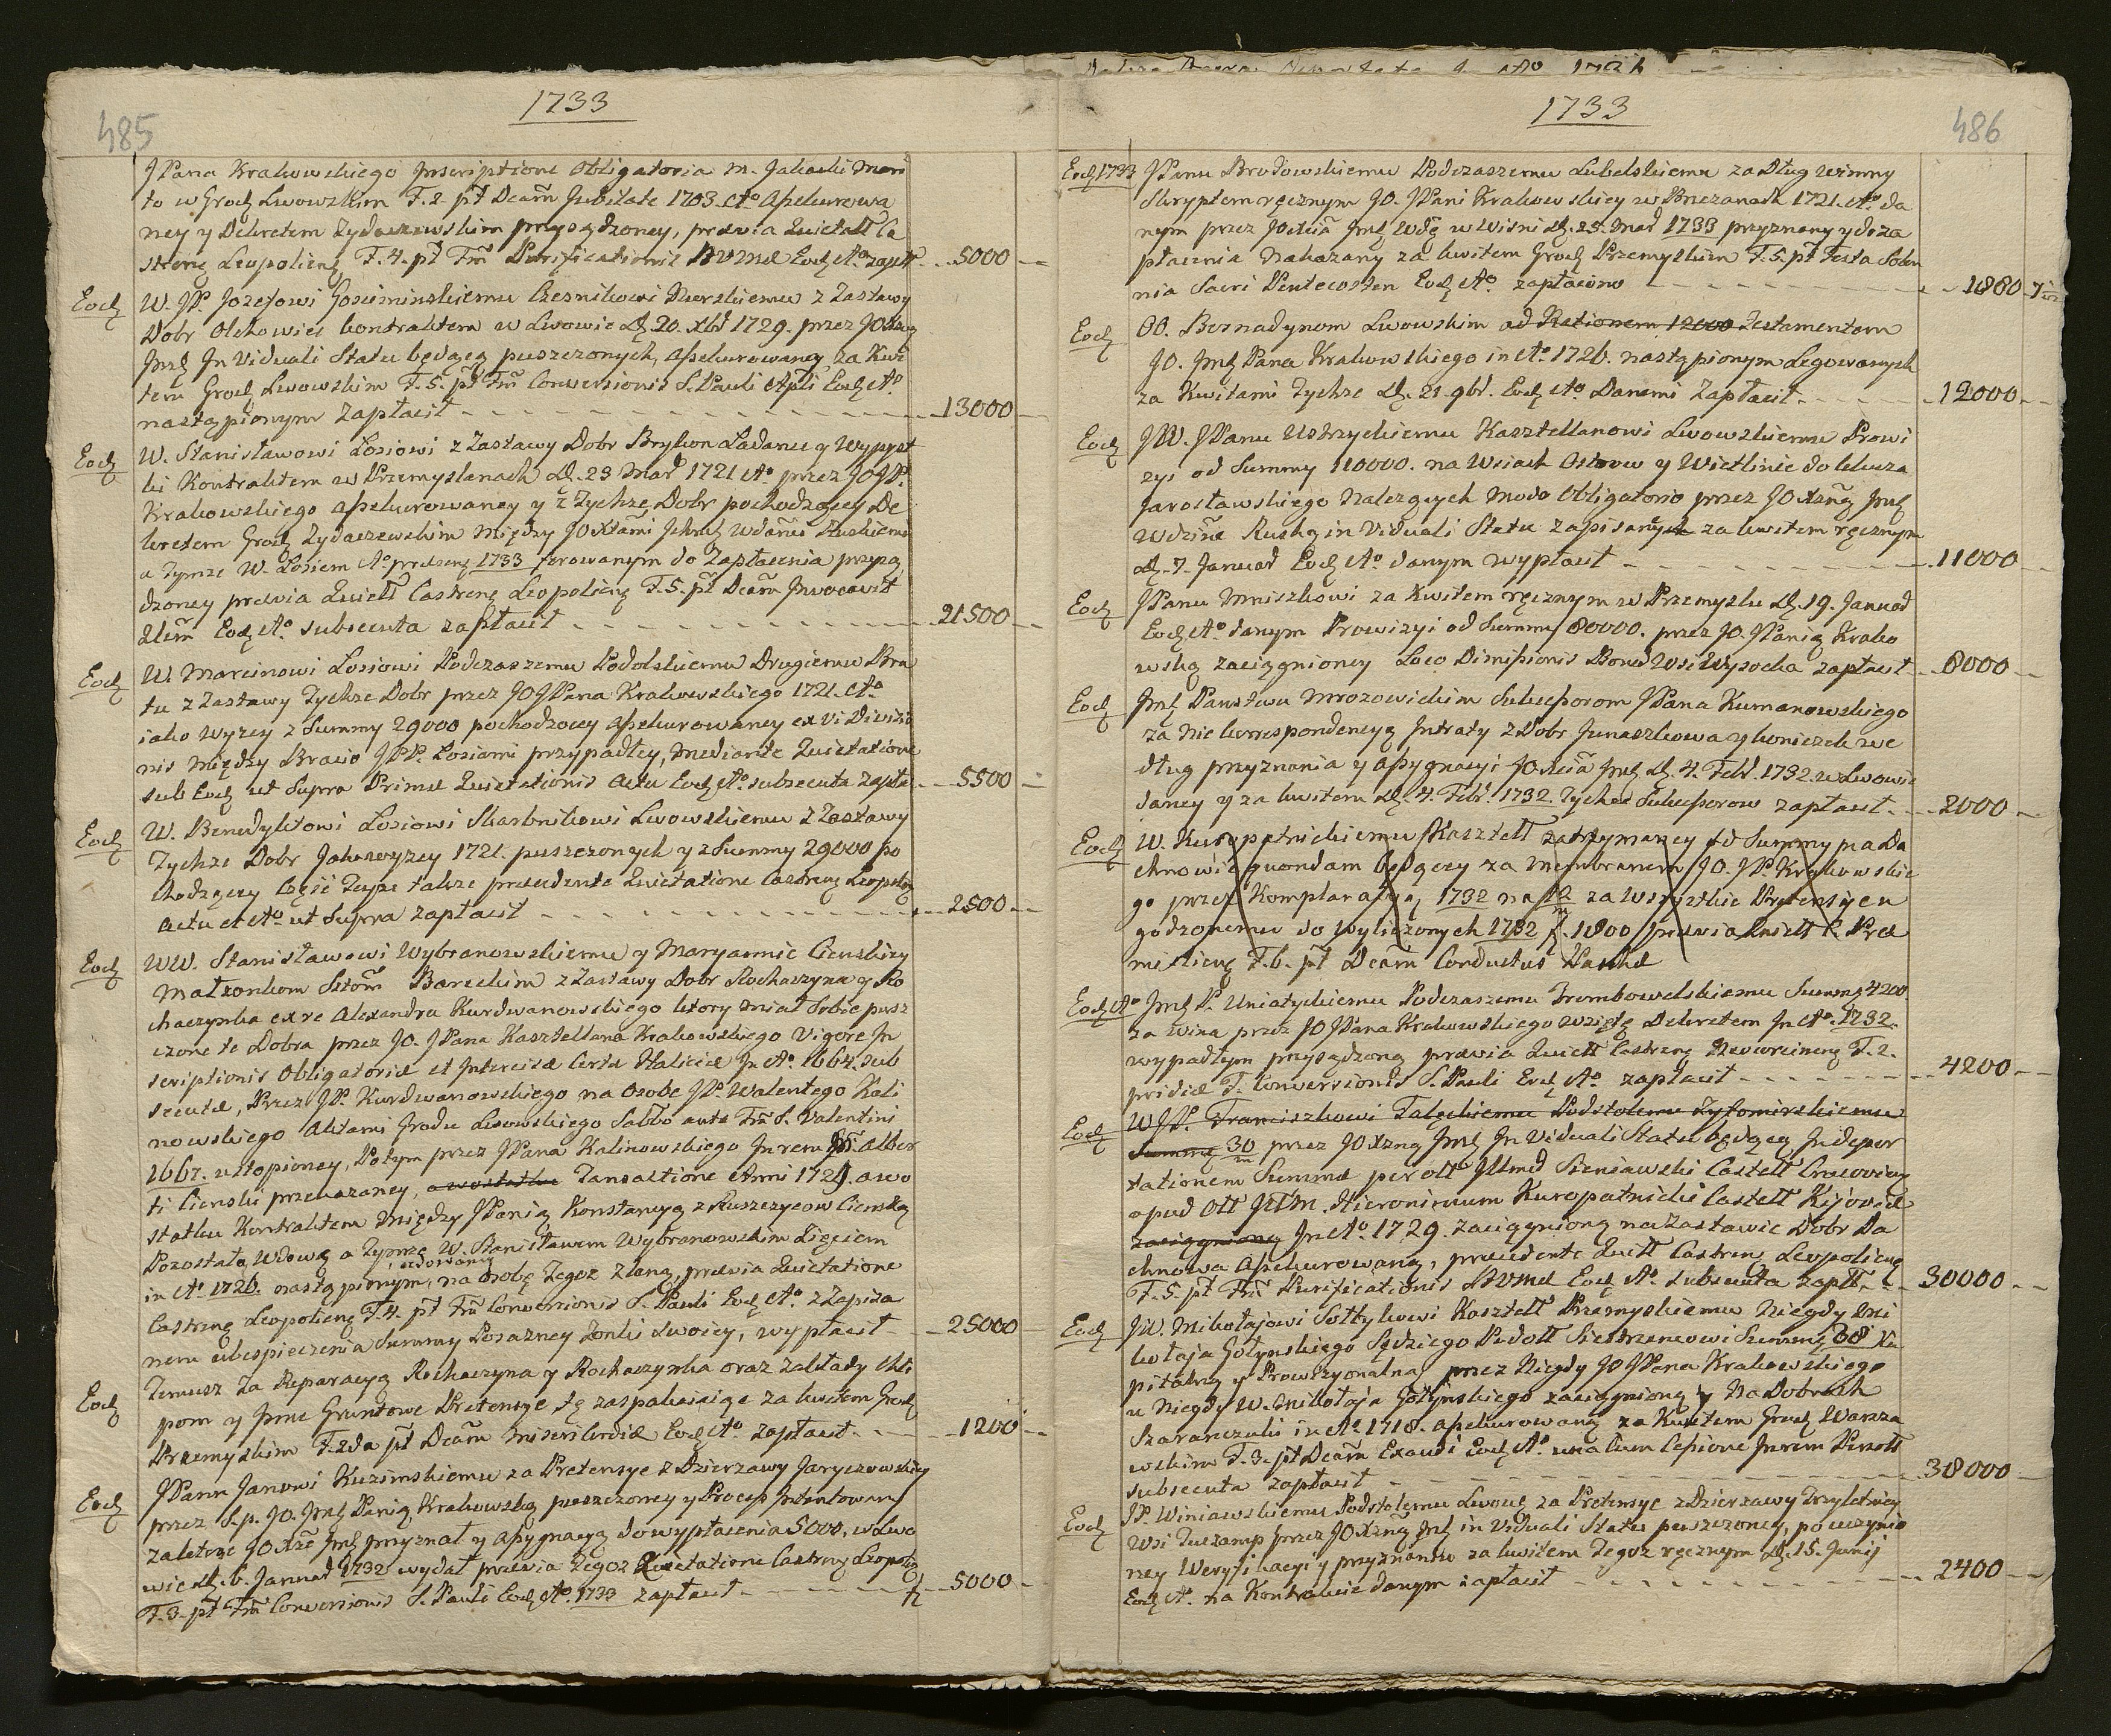 485
1733
JPana Krakowskiego Inscriptione Obligatoria m. Jakoċki
to w Grod Lwowskim F. 2. pt Dcam Jubilate 1703. Ao Assekurowa
ney y Dekretem Zydaczewskim przysądzoney, prævia Quietatt Ca
strens Leopoliens F. 4. pt Fm Purificationis BVMæ Eod Ao zapłt 5000
Eod W. JP. Jozefowi Gosiminskiemu Czesnikowi Nurskiemu z Zastawy
Dobr Olchowiec kontraktem w Lwowie d. 20. xbr 1729. przez JO
Jmć Jn Viduali Statu będącą puszczonych, assekurowaney za Kwi
tem Grod Lwowskim F. 5. pt Fm Conversionis S. Pauli Apli Eod Ao
nastąpionym zapłacił 13000
Eod W. Stanisławowi Łosiowi z Zastawy Dobr Brykon Ładance y Wypyst
ki Kontraktem w Przemyslanach d. 23 Mar 1721 Ao przez JOJP.
Krakowskiego assekurowaney y z Tychze Dobr pochodzącey De
kretem Grod Zydaczewskim między JOXtami Ichmć Wdami Ruskiemi
a Tymze W. Łosiem Ao præsens 1733 ferowanym do Zapłacenia przysą
dzoney prævia Quiett Castrens Leopoliens F. 5. pt Dcam Invocavit
Eod Ao subsecuta zapłacił 21500
Eod W. Marcinowi Łosiowi Podczaszemu Podolskiemu Drugiemu Bra
tu z Zastawy Tychze Dobr przez JOJPana Krakowskiego 1721. Ao
iako wyzey z Summy 29000 pochodzącey assekurowaney ex vi Divisio
nis między Bracią JPP. Łosiami przypadłey, mediante Quietatione
sub Eod ut Supra Primæ Quietationis actu Eod Ao subsecuta zapła 5500
Eod W. Benedyktowi Łosiowi Skarbnikowi Lwowskiemu z Zastawy
Tychze Dobr Jakowyzey 1721. puszczonych y z Summy 29000 po
chodzącey Część Teyze takze præcedente Quietatione Castrens Leopoliens
actu et Ao ut Supra zapłacił 2500
Eod WW. Stanisławowi Wybranowskiemu y Maryannie Cienskiey
Małzonkom Sttom Barschim z Zastawy Dobr Rochaczyna y Ro
chaczynka ex re Alexandra Kurdwanowskiego ktory miał Sobie pusz
czone te Dobra przez JO. JPana Kasztellana Krakowskiego Vigore In
scriptionis Obligatoriæ et Intercisæ Certæ Haliciæ Jn Ao 1664. sub
secutæ, Przez JP. Kurdwanowskiego na Osobe JP. Walentego Kali
nowskiego Aktami Grodu Lwowskiego Sabbo ante Fm S. Valentini
1667. ustąpioney, Potym przez JPana Kalinowskiego In rem Alber
ti Cienski przekazaney, a w ostatku Tansaktione Anni 1729. a wo
statku Kontraktem między JPanią Konstancyą z Ruszczycow Cienską
Pozostałą Wdową a Tymze W. Stanisławem Wybranowskim Zięciem
in Ao 1726. nastąpionym, na osobę Tegoz Zlaną, prævia Quietatione
Castrens Leopoliens F. 4. pt Fm Conversionis S. Pauli Eod Ao. z Zapisa
nem ubespieczenia Summy Posazney Zonki Swoiey, wypłacił 25000
Eod Temusz Za Reparacyą Rochaczyna y Rochaczynka oraz Zakłady Chło
pom y Jnne Gruntowe Pretensye tę zaspakaiaiąc za kwitem Grod
Przemyskim F. 2da pt Dcam Misericordiæ Eod Ao zapłacił 1200
Eod JPanu Janowi Kuzimskiemu za Pretensye z Dzierzawy Jaryczowskiey
przez S.p. JO. Jmć Panią Krakowską puszczoney y Process Intentowany
za ktore JOXże Jmć przyznał y Assygnacyą do wypłacenia 5000, w Lwo
wie d. 6. Januar 1732 wydał prævia Tegoz Quietatione Castrens Leopoliens
F. 3. pt Fm Conversionis S. Pauli Eod Ao. 1733 zapłacił 5000
1733
486
Eod 1733 JPanu Brodowskiemu Podczaszemu Lubelskiemu za Dług winny
Skryptem ręcznym JO. JPani Krakowskiey w Brzezanach 1721. Ao da
nym przez JOXcia Jmć Wdę w Wisni d. 25. Mar 1733 przyznany y do za
płacenia Nakazany za kwitem Grod Przemyskim F. 5. pt Festa Solen
nia Sacri Pentecosten Eod Ao zapłacono 1860 7
Eod OO. Bernadynom Lwowskim ad Rationem 12000 Testamentem
JO. Jmć Pana Krakowskiego in Ao 1726. nastąpionym Legowanych
za Kwitami Tychze d. 21. 9br. Eod Ao Danemi Zapłacił 12000
Eod JW. JPanu Ustrzyckiemu Kasztellanowi Lwowskiemu Prowi
zyi od Summy 110000. na Wsiach Ostrow y Wietlinie do klucza
Jarosławskiego Nalezących Modo Obligatorio przez JOXzną Jmć
Wdzinę Ruską in Viduali Statu Zapisanych za kwitem ręcznym
d. 7. Januar Eod Ao danym wypłacił 11000
Eod JPanu Mniszkowi za Kwitem ręcznym w Przemyslu d. 19. Januar
Eod Ao danym Prowizyi od Summy 80000. przez JO. JPanią Krako
wską zaciągnioney Loco Dimissionis Bonor Wsi Wysocka zapłacił 8000
Eod Jmć Panstwu Mrozowickim Sukcessorom JPana Kumanowskiego
za Nie korrespondencyą Intraty z Dobr Junaszkowa y koniczek we
dług przyznania y Assygnacyi JOXcia Jmć d. 4. Febr. 1732. w Lwowie
daney y za kwitem d. 4. Febr. 1732 Tychze Sukcessorow zapłacił 2000
Eod W. Kuropatnickiemu Kasztell zatrzymaney od Summy na Da
chnowie quondam będącey za Membranem JO. JP. Krakowskie
go przez Komplanacyą 1732 na 12/m za Wszystkie Pretensye u
godzonemu do wyliczonych 1732 f. 1800 prævia Quiett C. Præ
misliens F. 6. pt Dcam Conductus Paschæ
Eod Ao Jmć P. Uniatyckiemu Podczaszemu Trembowelskiemu Summę 4200
za wina przez JO JPana Krakowskiego wzięte Dekretem Jn Ao 1732
wypadłym przysądzoną prævia Quiett Castrens F. 2.
pridie F. Conversionis S. Pauli Eod Ao zapłacił 4200
Eod WJP. Franciszkowi Załęckiemu Podstolemu Zytomirskiemu
Summę 30/m przez JOXzną Jmć Jn Viduali Statu będącą In depor
tationem Summæ per olt Illmd Sieniawski Castell Cracovien
apud Olt Illm. Hieronimum Kuropatnicki Castell Kijoviæ
zaciągnioney Jn Ao 1729. zaciągnioną na Zastawie Dobr Da
chnowa Assekurowaną, præcedente Quitt Castren Leopoliens
F. 5. pt Fm Purificationis BVMæ Eod Ao subsecuta zapłł 30000
Eod JW. Mikołajowi Sołtykowi Kasztell Przemyskiemu Niegdy Mi
kołaja Gołynskiego Sędziego Podoll Siestrzencowi Summę 38 Ka
pitalną y Prowizyonalną przez Niegdy JO JPana Krakowskiego
u Niegdy W. Mikołaja Gołynskiego zaciągnioną y Na Dobrach
Szaranczuki in Ao 1718. assekurowaną za Kwitem Grod Warsza
wskim F. 3. pt Dcam Exaudi Eod Ao. una cum Cessione In rem
subsecuta zapłacił 38000
Eod JP. Winiawskiemu Podstolemu Lwows za Pretensye z Dzierzawy Trzyletniey
Wsi Tuczamp przez JOXzną Jmć in Viduali Statu puszczoney, po uczynio
ney Weryfikacyi y przyznaniu za kwitem Tegoz ręcznym d. 15. Junij
Eod Ao. na Kontrakcie danym zapłacił 2400